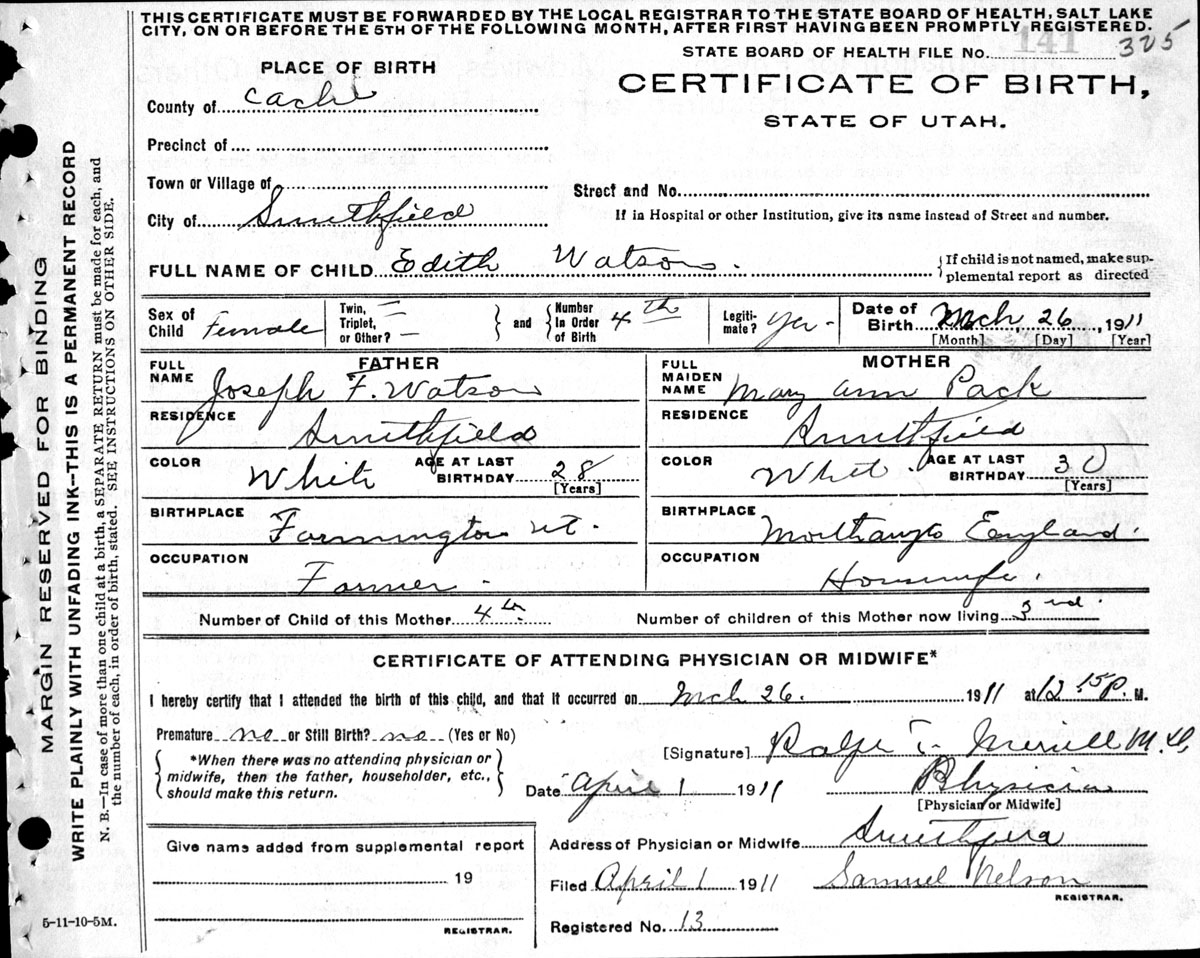 THIS CERTIFICATE MUST BE FORWARDED BY THE LOCAL REGISTRAR TO THE STATE BOARD OF HEALTH, SALT LAKE
CITY, ON OR BEFORE THE 5TH OF THE FOLLOWING MONTH, AFTER FIRST HAVING BEEN PROMPTLY REGISTERED.
STATE BOARD OF HEALTH FILE No. 141 325
PLACE OF BIRTH
CERTIFICATE OF BIRTH,
STATE OF UTAH.
County of Cache
Precinct of
Town or Village of
Street and No.
City of Smithfield
If in Hospital or other Institution, give its name instead of Street and number.
FULL NAME OF CHILD Edith Watson.
If child is not named, make sup-
plemental report as directed
Sex of Child Female
Twin, Triplet, or Other? —
and
Number In Order of Birth 4th
Legiti-mate? Yes -
Date of Birth Mch, 26, 1911
[Month] [Day] [Year]
FATHER
FULL NAME Joseph F. Watson
RESIDENCE Smithfield
COLOR White
AGE AT LAST BIRTHDAY 28
[Years]
BIRTHPLACE Farmington Ut.
OCCUPATION Farmer -
MOTHER
FULL MAIDEN NAME Mary Ann Pack
RESIDENCE Smithfield
COLOR Whit.
AGE AT LAST BIRTHDAY 30
[Years]
BIRTHPLACE England.
OCCUPATION Housewife.
Number of Child of this Mother 4th
Number of children of this Mother now living 3rd.
CERTIFICATE OF ATTENDING PHYSICIAN OR MIDWIFE*
I hereby certify that I attended the birth of this child, and that it occurred on Mch 26. 1911 at 12 15 P. M.
Premature no or Still Birth? no (Yes or No)
*When there was no attending physician or
midwife, then the father, householder, etc.,
should make this return.
[Signature] Merrill M.D.
Date April 1 1911
Physician
[Physician or Midwife]
Address of Physician or Midwife Smithfield
Filed April 1 1911 Samuel Nelson
REGISTRAR.
Registered No. 13
Give name added from supplemental report
19
REGISTRAR.
5-11-10-5M.
MARGIN RESERVED FOR BINDING
WRITE PLAINLY WITH UNFADING INK—THIS IS A PERMANENT RECORD
N. B.—In case of more than one child at a birth, a SEPARATE RETURN must be made for each, and
the number of each, in order of birth, stated. SEE INSTRUCTIONS ON OTHER SIDE.